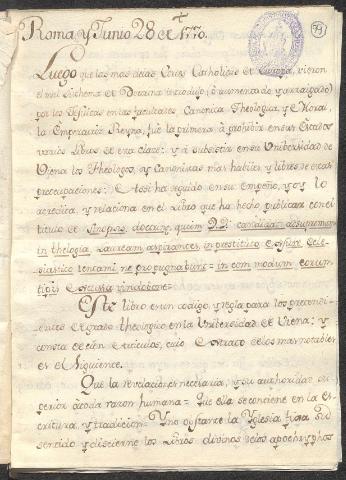 Roma y Junio 28 de 1770.
79
Luego que las mas de las Cortes Catholicas de Europa, vieron
el mal systhema de Doctrina introducido, ò aumentado y arraigado
por los Jesuitas en las facultades Canonica Theologica, y Moral,
la Emperatriz Reyna, fue la primera à prohibir en sus Estados
varios Libros de esta clase: y à subsistir en su Universidad de
Viena los Theologos, y Canonistas mas habiles y libres de estas
preocupaciones: Esto se ha seguido en su empeño, y lo
acredita, y relaciona en el Libro que ha hecho publicar con el
titulo de doctrinæ, quam DD.
in theologia, Lauream aspirantes, in
siastico tentami, ne propugnabunt = in commodum eorum
typis Vindobone =
Este libro es un codigo, y regla para los pretendi-
entes de grado theologico en la Universidad de Viena: y
consta de cien articulos, cuio extracto de los mas notables
es el siguiente.
Que la revelacion es necesaria, y su authoridad su-
perior à toda razon humana = Que ella se contiene en la es-
critura, y tradicion = Y no obstante la Yglesia fixa su
sentido, y discierne los Libros divinos de los apochryphos